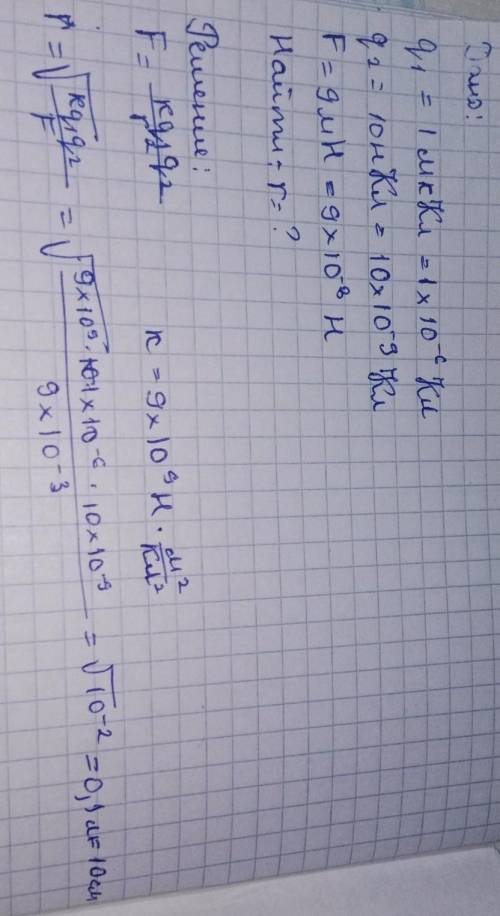 Дано:
q₁ = 1 мкКл = 1 × 10⁻⁶ Кл
q₂ = 10 нКл = 10 × 10⁻⁹ Кл
F = 9 мН = 9 × 10⁻³ Н
Найти: r = ?
Решение:
F = kq₁q₂/r² k = 9 × 10⁹ Н · м²/Кл²
r = √(kq₁q₂/F) = √(9×10⁹ · 1×10⁻⁶ · 10×10⁻⁹ / 9×10⁻³) = √10⁻² = 0,1 м = 10 см